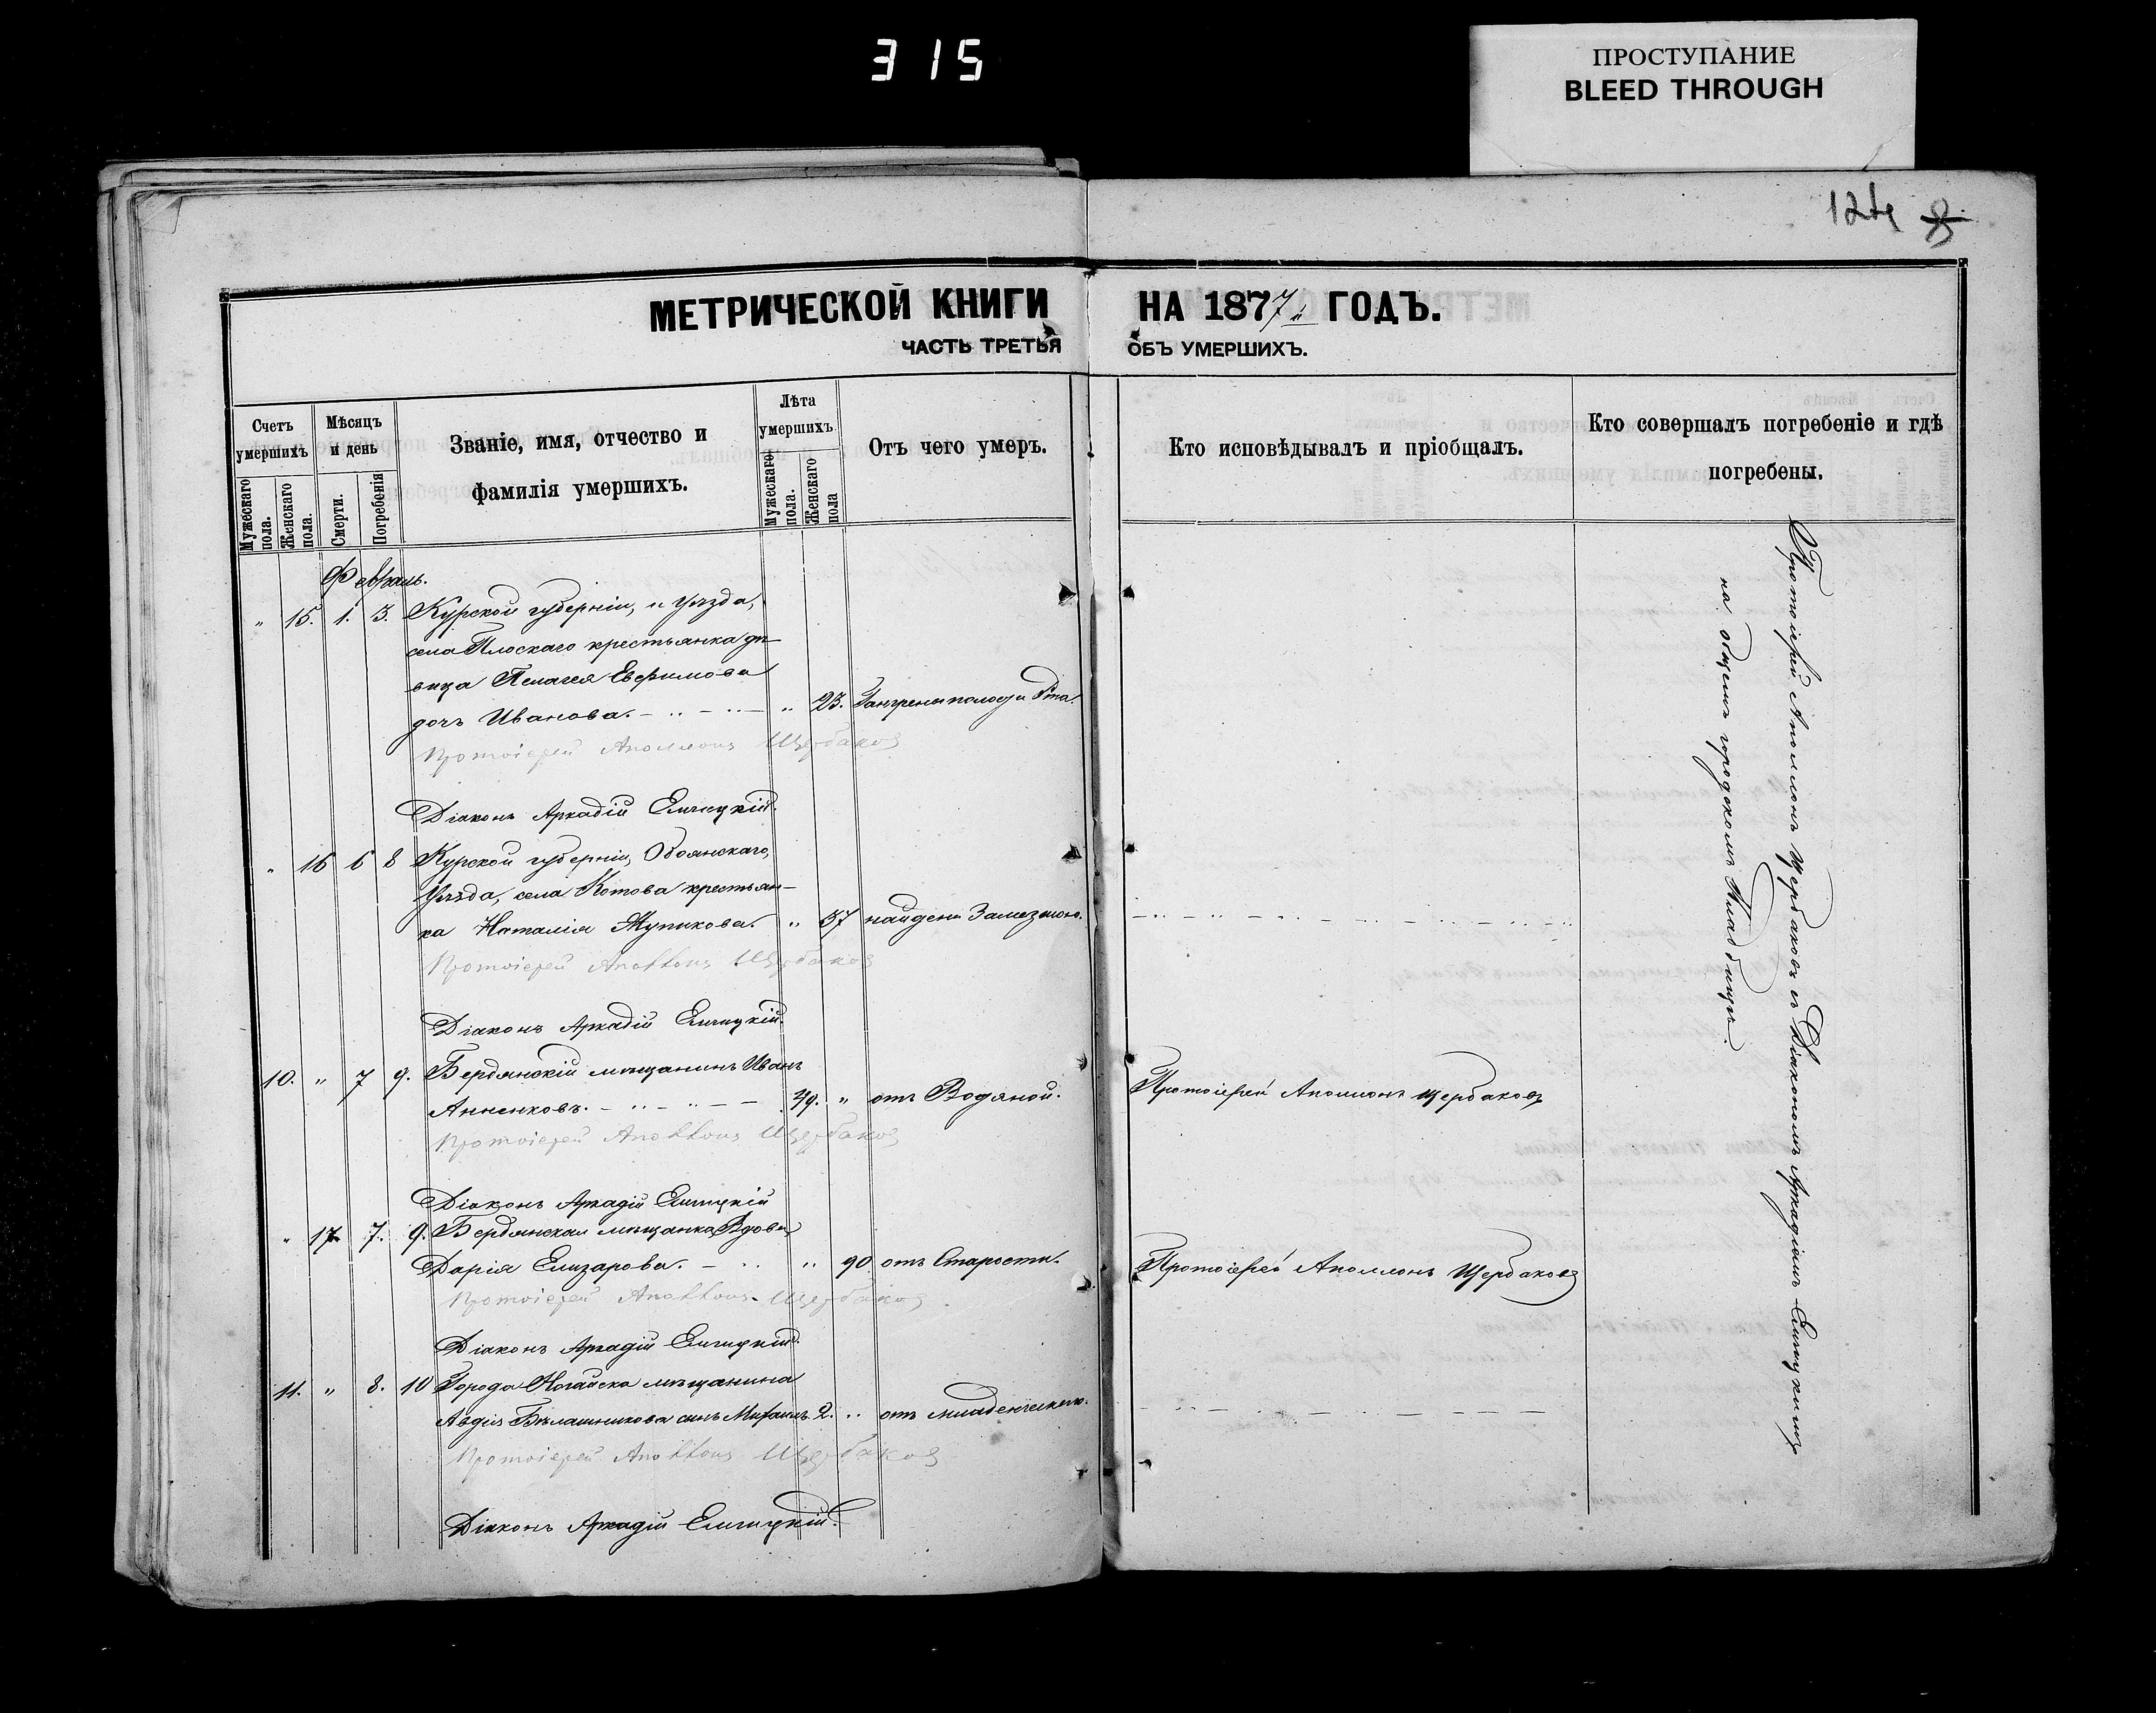 315
ПРОСТУПАНИЕ
BLEED THROUGH
124
МЕТРИЧЕСКОЙ КНИГИ НА 1877 ГОДЪ.
ЧАСТЬ ТРЕТЬЯ ОБЪ УМЕРШИХЪ.
Счетъ умершихъ
Мужескаго пола.
Женскаго пола.
Мѣсяцъ и день
Смерти.
Погребенія
Званіе, имя, отчество и
фамилія умершихъ.
Лѣта умершихъ
Мужескаго пола.
Женскаго пола
Отъ чего умеръ.
Кто исповѣдывалъ и пріобщалъ.
Кто совершалъ погребеніе и гдѣ
погребены.
Февраль.
" 15. 1. 3. Курской губерніи, и уѣзда,
села Плоскаго крестьянка дѣ-
вица Пелагея Евфимова
дочь Иванова. " 23. Гангрены полости рта.
Протоіерей Аполлонъ Щербаковъ
Діаконъ Аркадій Елицкій.
" 16 6 8 Курской губерніи, Обоянскаго,
Уѣзда, села Котова крестьян-
ка Наталія Жупикова. " 37 найдена Замерзшою.
Протоіерей Аполлонъ Щербаковъ
Діаконъ Аркадій Елицкій.
10. " 7 9. Бердянскій мѣщанинъ Иванъ
Анненковъ. 49. " отъ Водяной. Протоіерей Аполлонъ Щербаковъ
Протоіерей Аполлонъ Щербаковъ
Діаконъ Аркадій Елицкій
" 17 7. 9. Бердянская мѣщанка Вдова
Дарія Елизарова. " 90 отъ Старости. Протоіерей Аполлонъ Щербаковъ
Протоіерей Аполлонъ Щербаковъ
Діаконъ Аркадій Елицкій.
11. " 8. 10 Города Ногайска мѣщанина
Авдія Бѣлашникова сынъ Михаилъ. 2. " отъ младенческаго.
Протоіерей Аполлонъ Щербаковъ
Діаконъ Аркадій Елицкій.
Протоіерей Аполлонъ Щербаковъ съ Діакономъ Аркадіемъ Елицкимъ
на общемъ городскомъ Кладбищѣ.